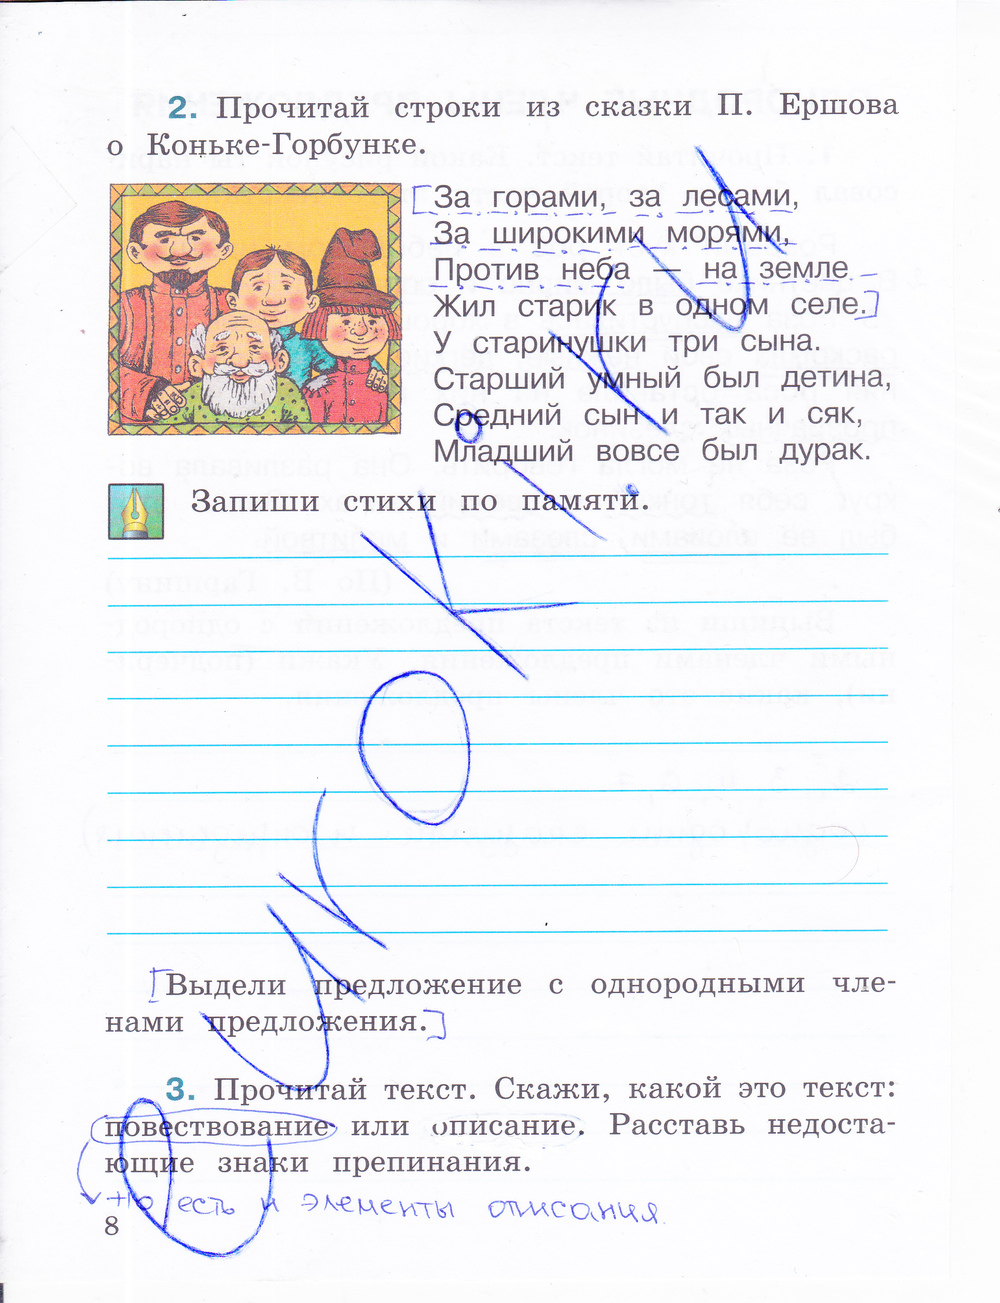 2. Прочитай строки из сказки П. Ершова
о Коньке-Горбунке.
За горами, за лесами,
За широкими морями,
Против неба — на земле
Жил старик в одном селе.
У старинушки три сына.
Старший умный был детина,
Средний сын и так и сяк,
Младший вовсе был дурак.
Запиши стихи по памяти.
Выдели предложение с однородными чле-
нами предложения.
3. Прочитай текст. Скажи, какой это текст:
повествование или описание. Расставь недоста-
ющие знаки препинания.
но есть и элементы описания
8